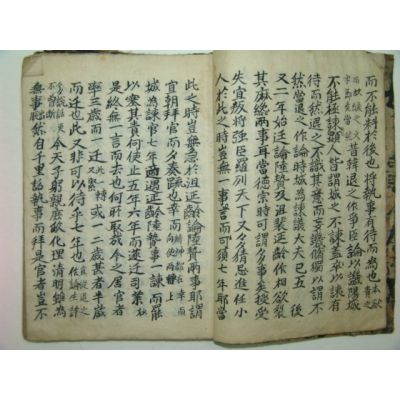 而不能料於後也將執事有待而為也
昔韓退之作爭臣論以譏陽城
不能極諫顯皆謂城之不諫盖卒以諫有
待而然退之不識其意而妄譏脩獨以謂不
然當退之作論時城為諫議大夫已五後
又二年始廷論陸贄及沮裴延齡作相欲裂
其麻纔兩事耳當德宗時可謂多事矣授受
失宜叛將強臣羅列天下又多猜忌進任小
人於此之時豈無一事言而可須七年耶當
此之時豈無急於沮延齡論陸贄兩事耶謂
宜朝拜官而夕奏疏也幸而
城為諫官七年適遇延齡陸贄事一諫而罷
以塞其責向使止五年六年而遂迁司業
是終無一言而去也何所取哉今之居官者
率三歲而一迁或一二歲甚者半歲
而迁也此又非可以待乎七年也
今天子躬親庶政化理清明雖為
無事然自千里詔執事而拜是官者豈不